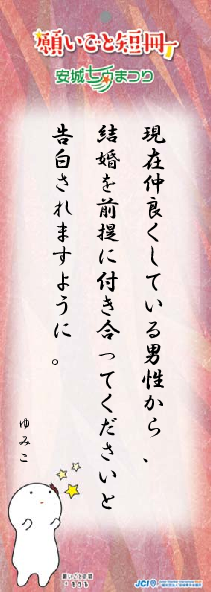 願いごと短冊
安城七夕まつり
現在仲良くしている男性から、
結婚を前提に付き合ってくださいと
告白されますように。
ゆみこ
JCI